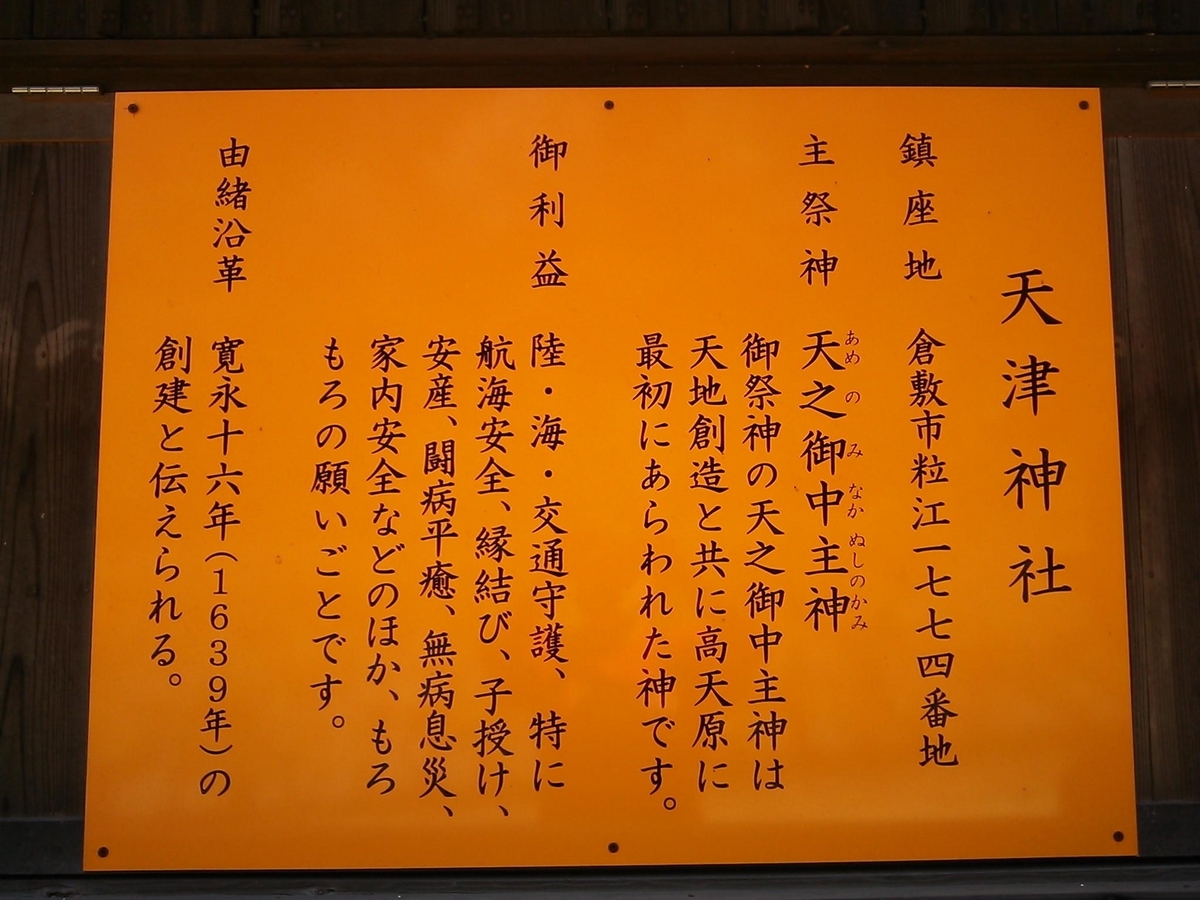 天津神社
鎮座地 倉敷市粒江一七七四番地
主祭神 天之御中主神
あめのみなかぬしのかみ
御祭神の天之御中主神は
天地創造と共に高天原に
最初にあらわれた神です。
御利益 陸・海・交通守護、特に
航海安全、縁結び、子授け、
安産、闘病平癒、無病息災、
家内安全などのほか、もろ
もろの願いごとです。
由緒沿革 寛永十六年(1639年)の
創建と伝えられる。